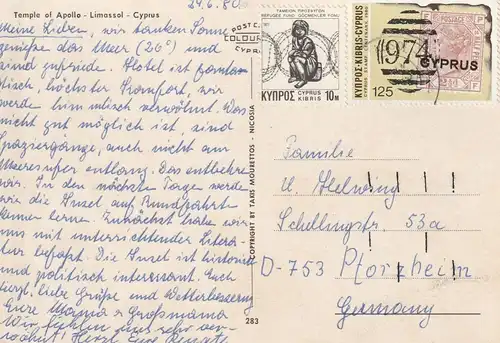 24.6.80
Temple of Apollo - Limassol - Cyprus
Meine Lieben, wir tanken Sonne
genießen das Meer (26°) und
sind zufrieden. Hotel ist fanta-
stisch, höchster Komfort, wir
werden himmlisch verwöhnt. Was
nicht gut möglich ist, sind
Spaziergänge, auch nicht am
Meeresufer entlang. Das entbehren
wir. In den nächsten Tagen werden
wir die Insel auf Rundfahrten
kennen lernen. Zunächst haben wir
uns mit unterrichtender Litera-
tur befaßt. Die Insel ist historisch
und politisch interessant. Euch
herzl. liebe Grüße und Wetterbesserung
Eure Mama & Großmama
Wir fühlen uns sehr ver-
wöhnt! Herzl. Eure Renate
COPYRIGHT BY TAKIS MOURETTOS - NICOSIA
283
POSTC
COLOUR
CYPR
ΤΑΜΕΙΟΝ ΠΡΟΣΦΥΓΩΝ
REFUGEE FUND GÖÇMENLER FONU
ΚΥΠΡΟΣ CYPRUS KIBRIS 10M
ΚΥΠΡΟΣ·KIBRIS·CYPRUS
CYPRUS STAMP CENTENARY 1880
125
974
CYPRUS
Familie
U. Hellwing
Schellingstr. 53a
D-753 Pforzheim
Germany